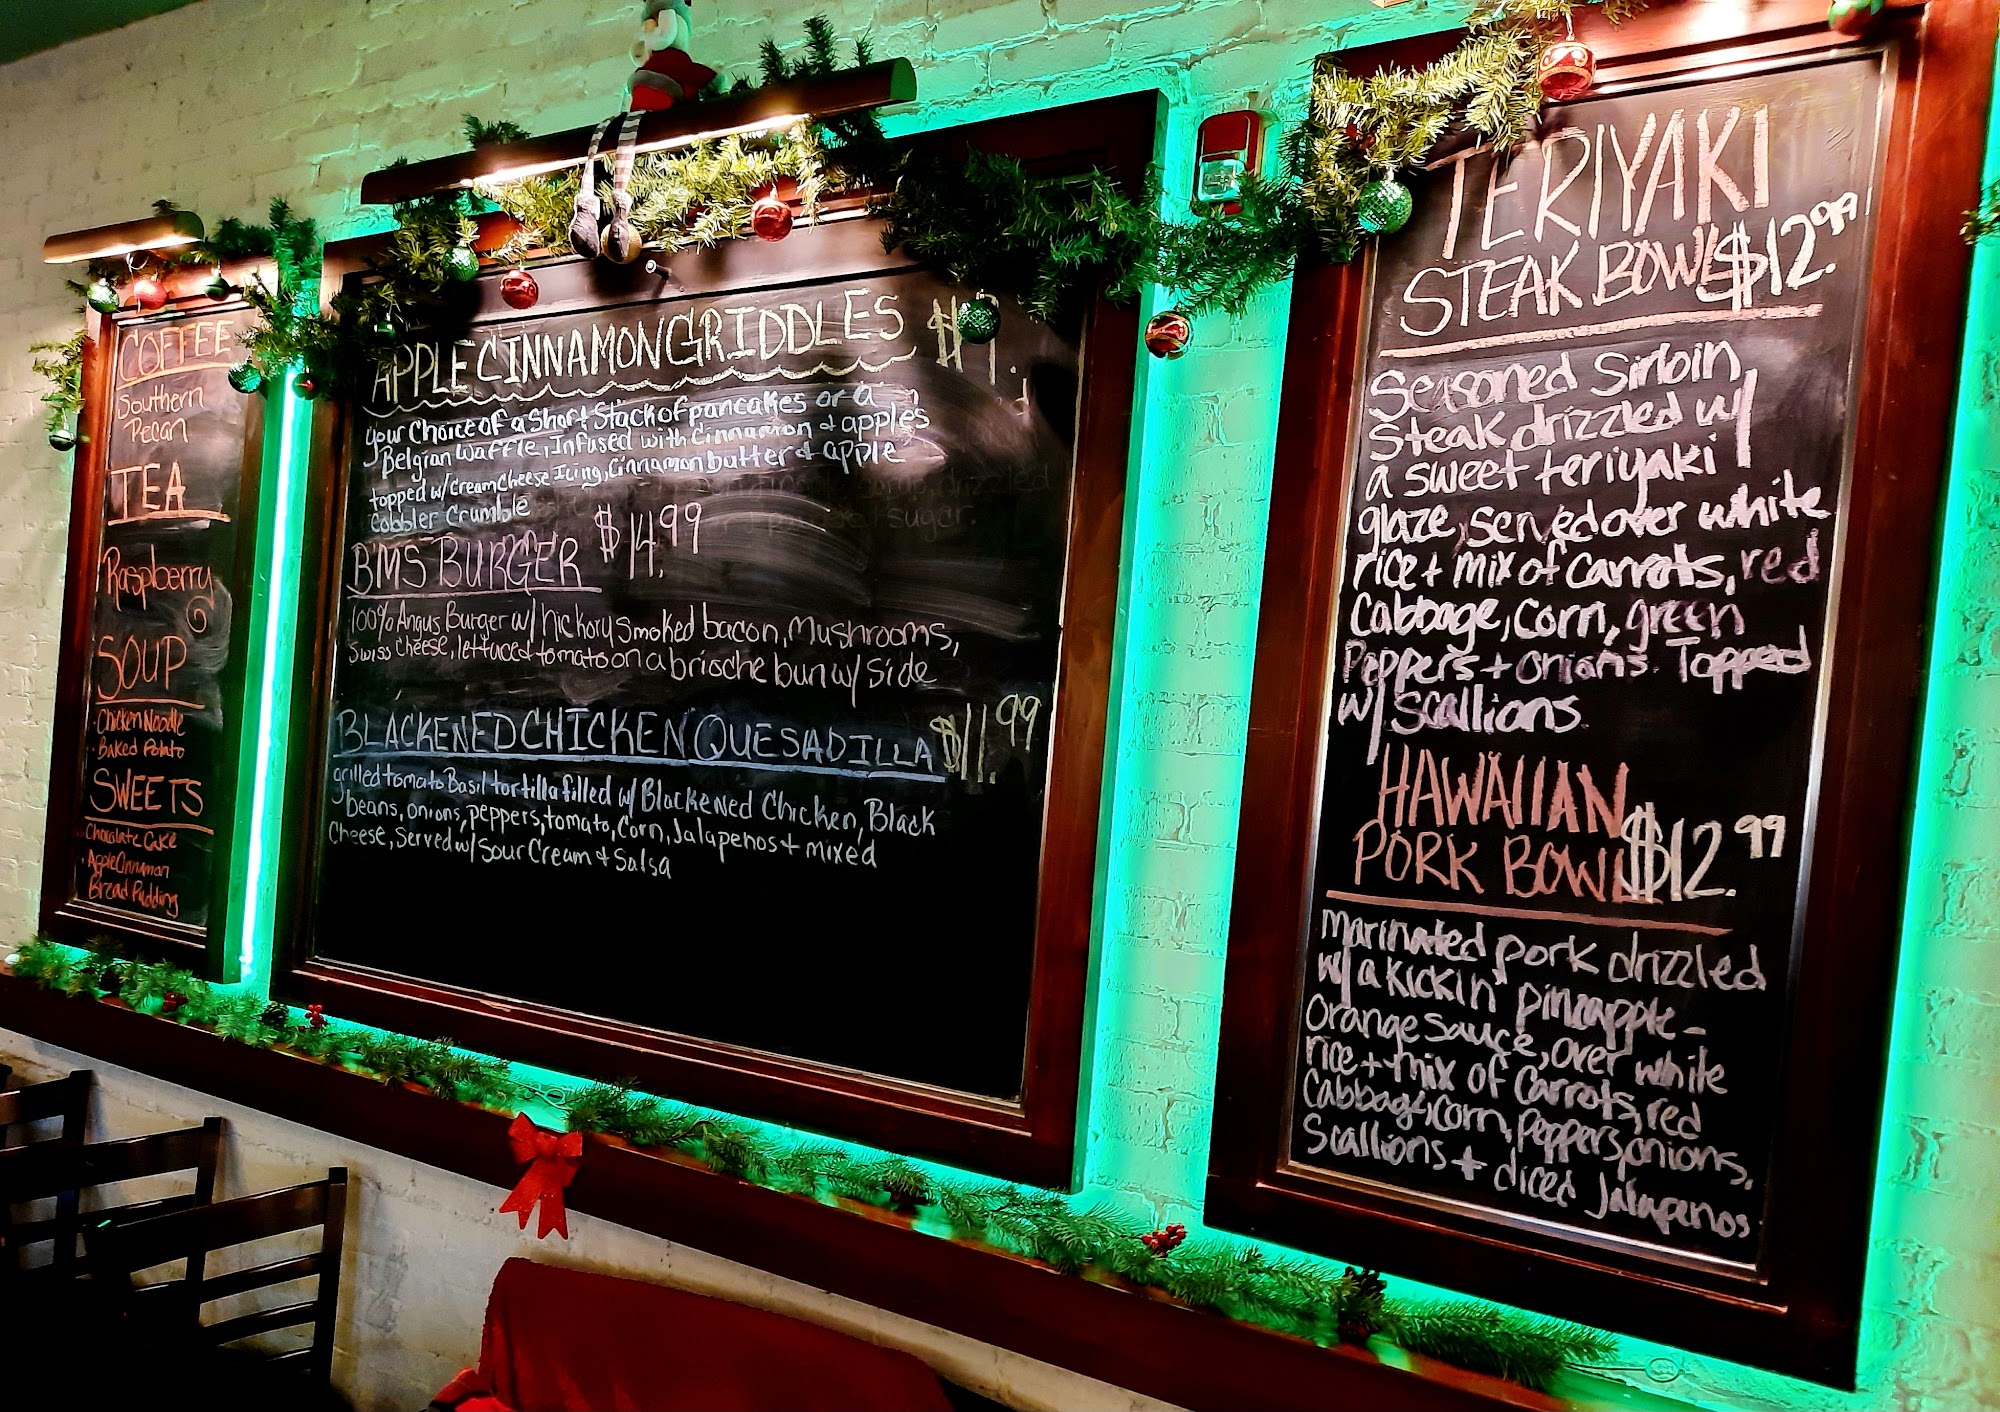 COFFEE
Southern
Pecan
TEA
Raspberry
SOUP
· Chicken Noodle
· Baked Potato
SWEETS
· Chocolate Cake
· Apple Cinnamon
Bread Pudding
APPLE CINNAMON GRIDDLES $
your Choice of a Short Stack of pancakes or a
Belgian Waffle, Infused with Cinnamon & apples
topped w/ Cream Cheese Icing, Cinnamon butter & apple
Cobbler Crumble
sugar.
BMS BURGER $14.99
100% Angus Burger w/ hickory Smoked bacon, Mushrooms,
Swiss Cheese, lettuce & tomato on a brioche bun w/ Side
BLACKENED CHICKEN QUESADILLA $11.99
grilled tomato Basil tortilla filled w/ Blackened Chicken, Black
beans, onions, peppers, tomato, Corn, Jalapenos + mixed
Cheese, Served w/ Sour Cream & Salsa
TERIYAKI
STEAK BOWL $12.99
Seasoned Sirloin
Steak drizzled w/
a sweet teriyaki
glaze, served over white
rice + mix of Carrots, red
Cabbage, Corn, green
Peppers + onions. Topped
w/ Scallions
HAWAIIAN
PORK BOWL $12.99
Marinated pork drizzled
w/ a kickin' pineapple-
Orange sauce, over white
rice + mix of Carrots, red
Cabbage, corn, Peppers, onions,
Scallions + diced Jalapenos